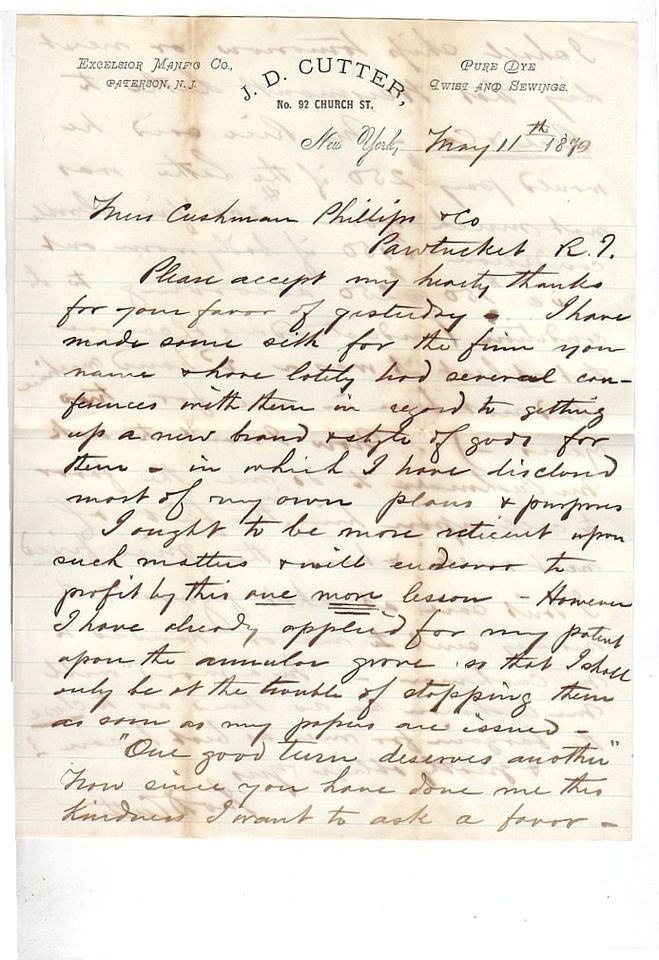 EXCELSIOR MANF'G CO.,
PATERSON, N.J.
J. D. CUTTER,
No. 92 CHURCH ST.
PURE DYE
TWIST AND SEWINGS.
New York, May 11th 1870
Mess Cushman Phillips & Co
Pawtucket R.I.
Please accept my hearty thanks
for your favor of yesterday - I have
made some silk for the firm you
name & have lately had several con-
ferences with them in regard to getting
up a new brand & style of goods for
them - in which I have disclosed
most of my own plans & purposes
I ought to be more reticent upon
such matters & will endeavor to
profit by this one more lesson - However
I have already applied for my patent
upon the annular grove so that I shall
only be at the trouble of stopping them
as soon as my papers are issued -
"One good turn deserves another"
Now since you have done me this
kindness I want to ask a favor -